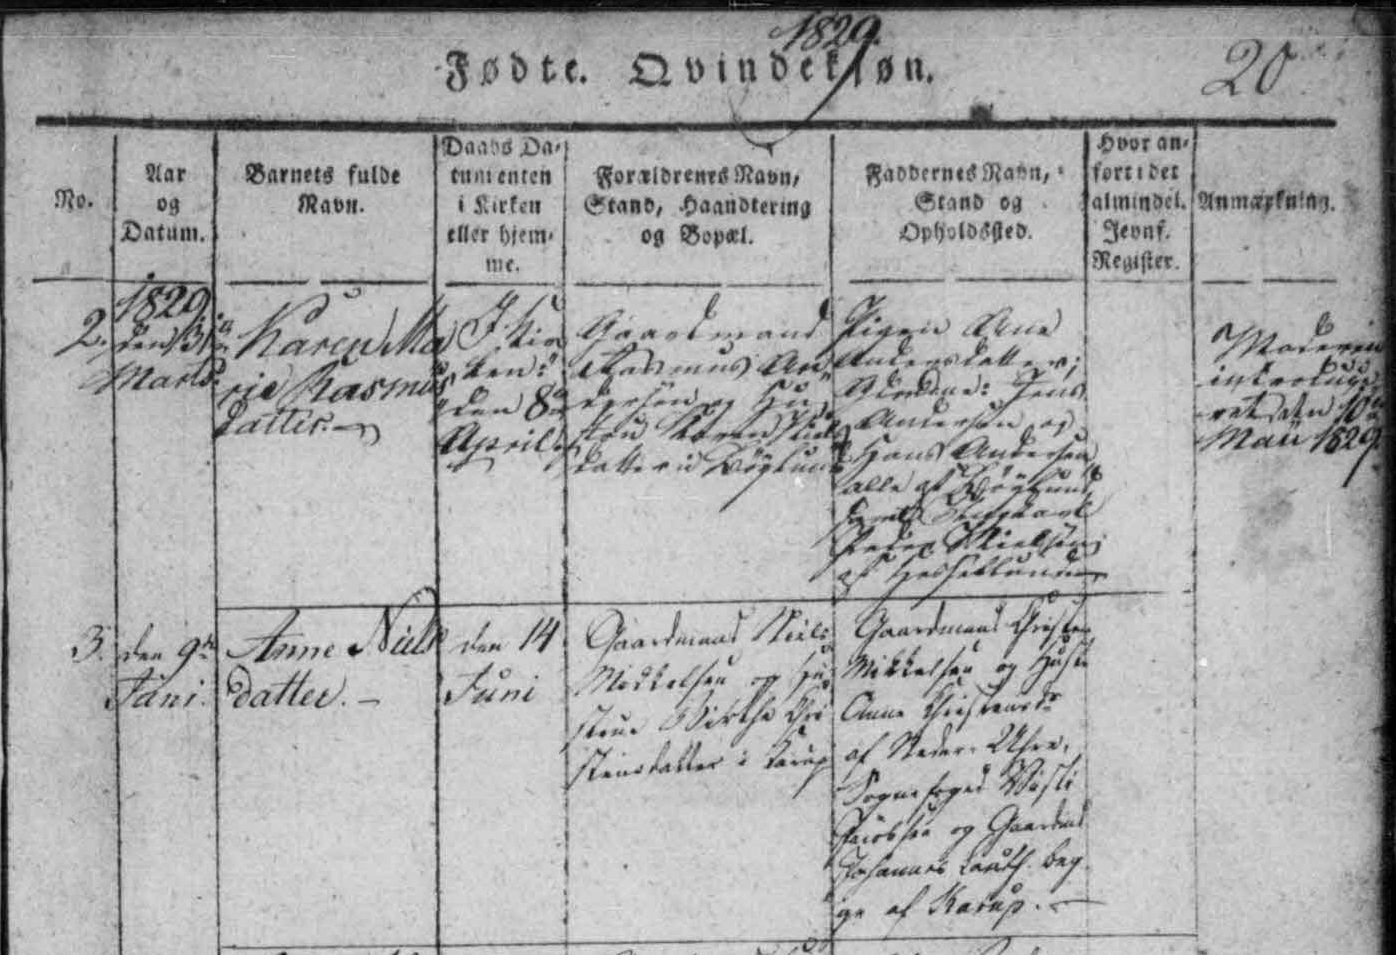 1829.
Fødte. Qvindekiøn.
20
No.
Aar
og
Datum.
Barnets fulde
Navn.
Daabs Da-
tum enten
i Kirken
eller hjem-
me.
Forældrenes Navn,
Stand, Haandtering
og Bopæl.
Faddernes Navn,
Stand og
Opholdssted.
Hvor an-
ført i det
almindel.
Jevnf.
Register.
Anmærkning.
2.
1829.
den 31
Marts
Karen Ma
rie Rasmus
datter.
I Kir
ken:
den 8de
April
Gaardmand
Rasmus An
dersen og Hu
stru Karen
datter i Bøglund
Pigen Ane
Andersdatter;
Jens
Andersen og
Hans Andersen
alle af Bøglund
Peder Nielsen
af Hesselund
Moderen
introduce
ret den 10de
Maii 1829.
3.
den 9de
Juni.
Anne Niels
datter.
den 14
Juni
Gaardmand Niels
Mikkelsen og Hu
strue Birthe Chri
stensdatter i Karup
Gaardmand Christen
Mikkelsen og Hustr
Anne Christensdr
af Neder-Uhre,
Sognefoged
Jacobsen og Gaardmd
Johannes beg
ge af Karup.